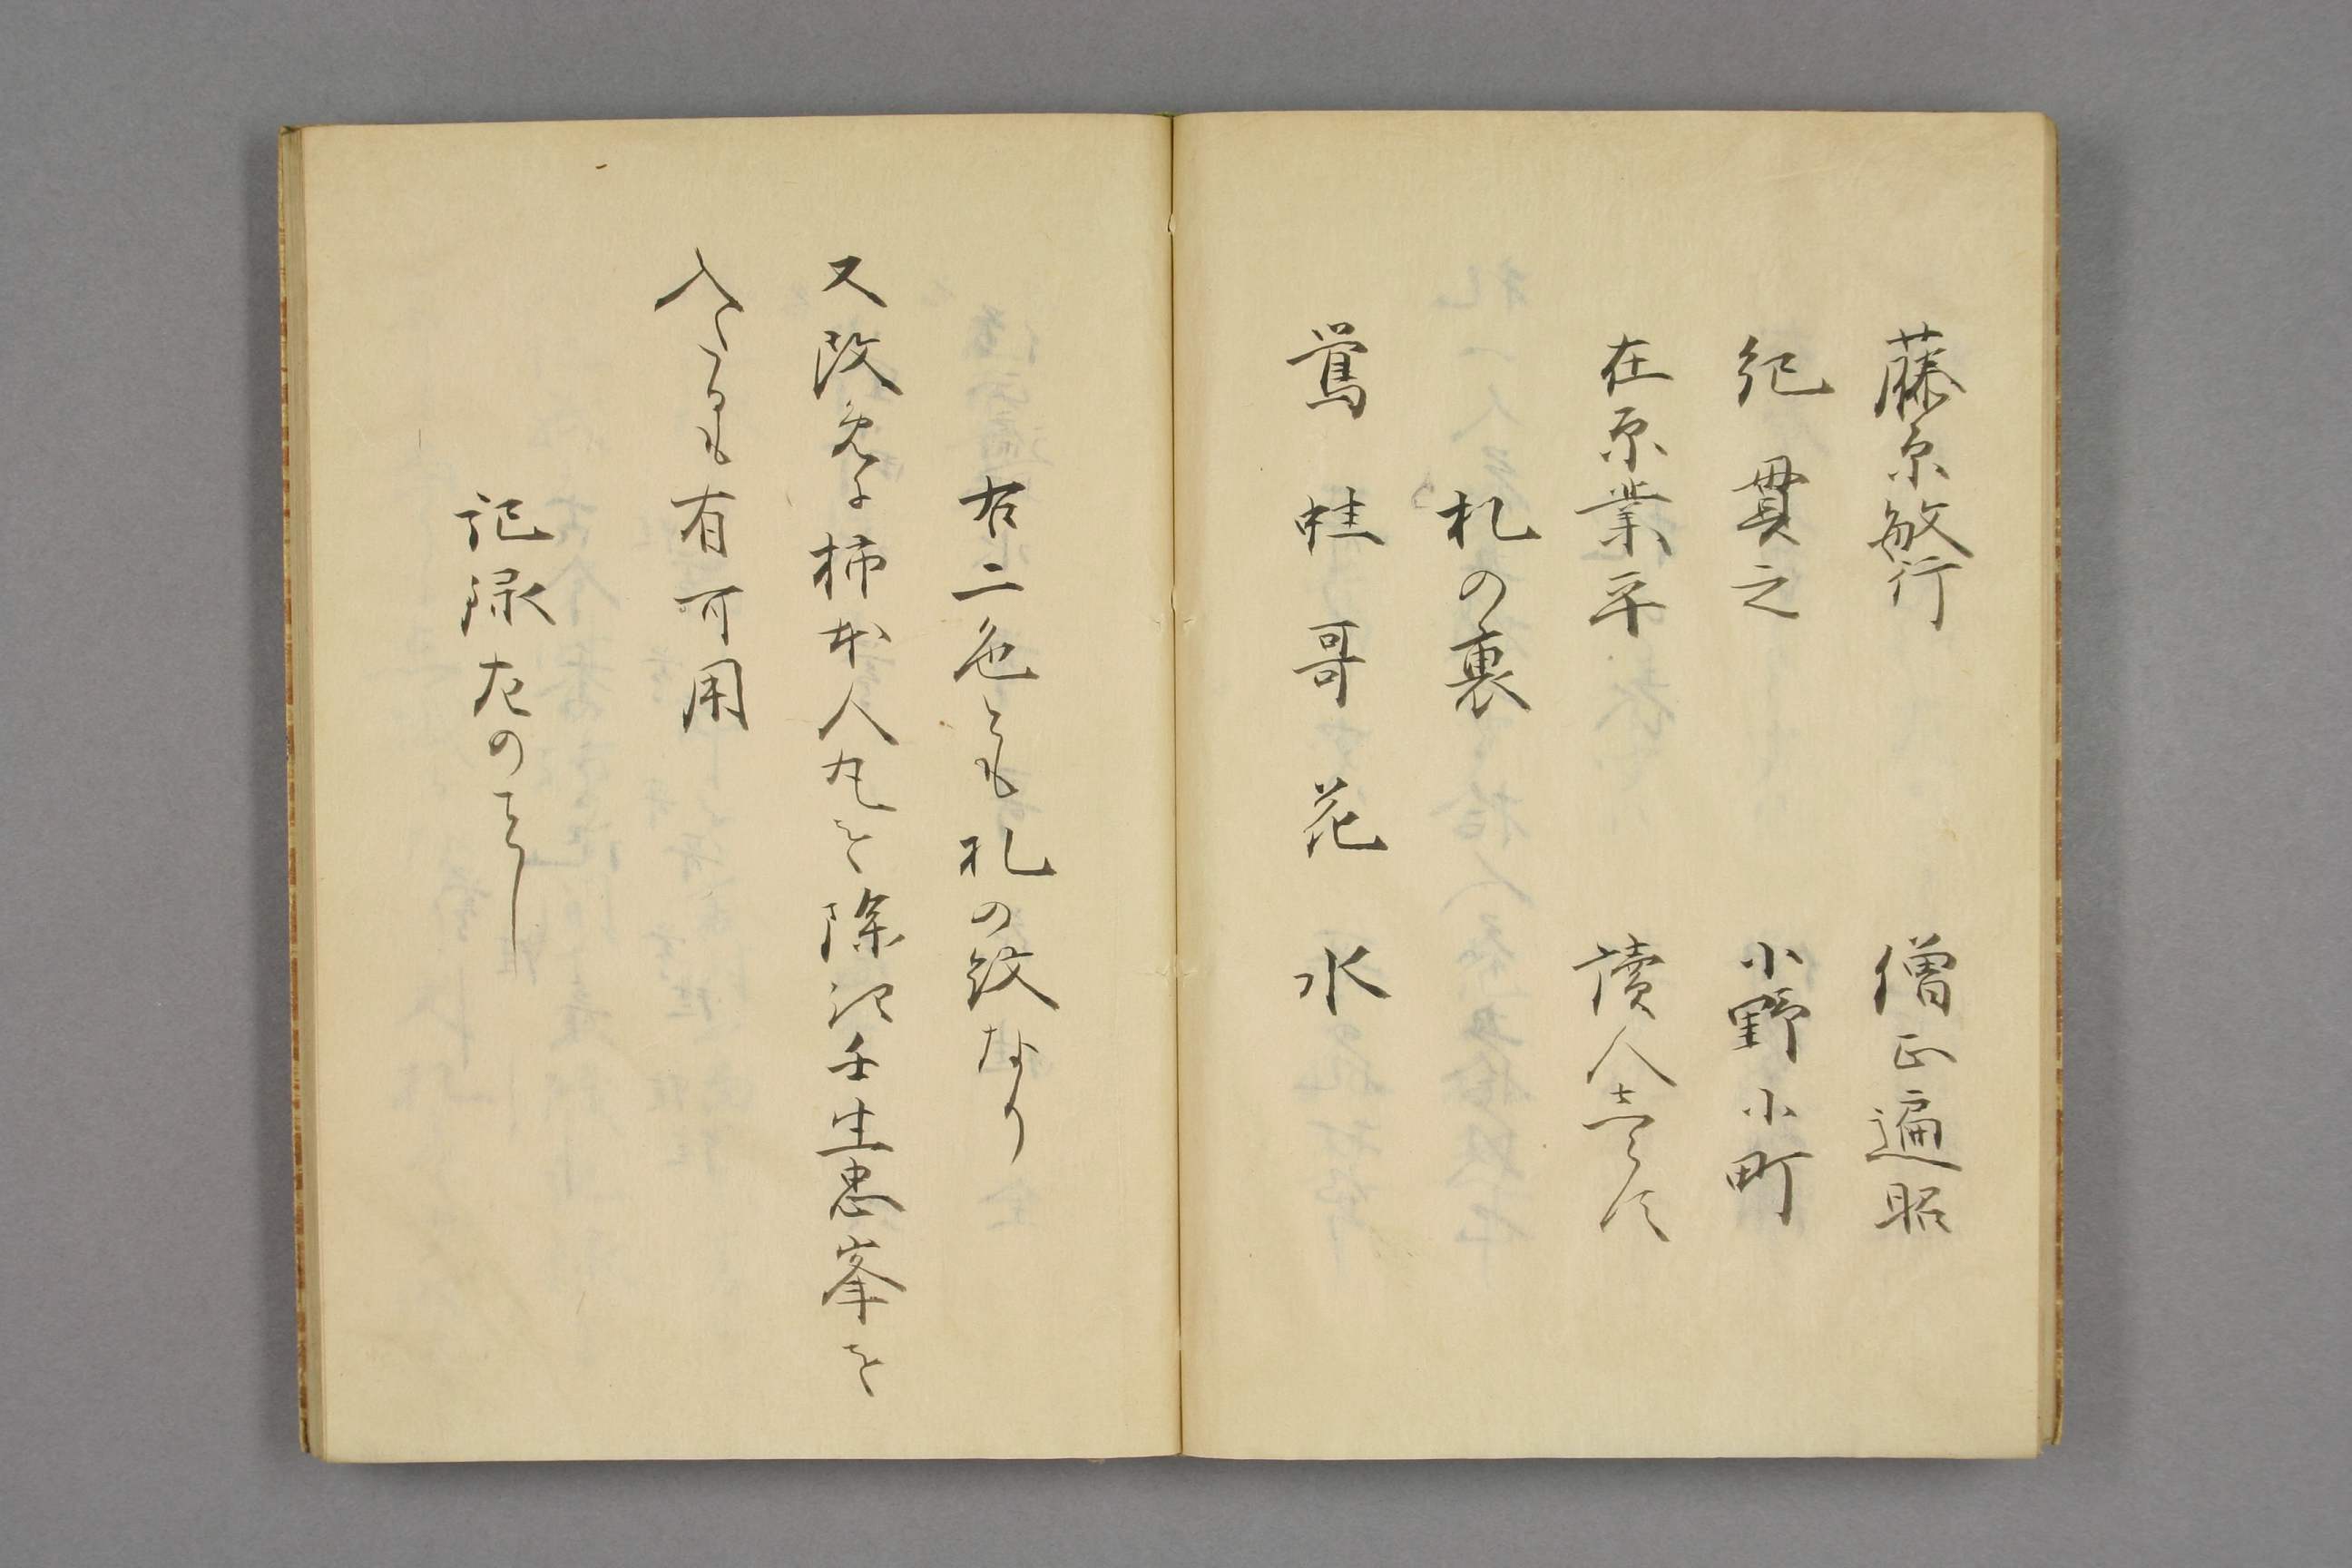 藤原敏行　僧正遍昭
紀貫之　小野小町
在原業平　讀人志らす
札の裏
鶯　蛙　哥　花　水
右二色とも札の紋なり
又改めに柿本人丸を除壬生忠峯を
入たるも有可用
記録左のことし